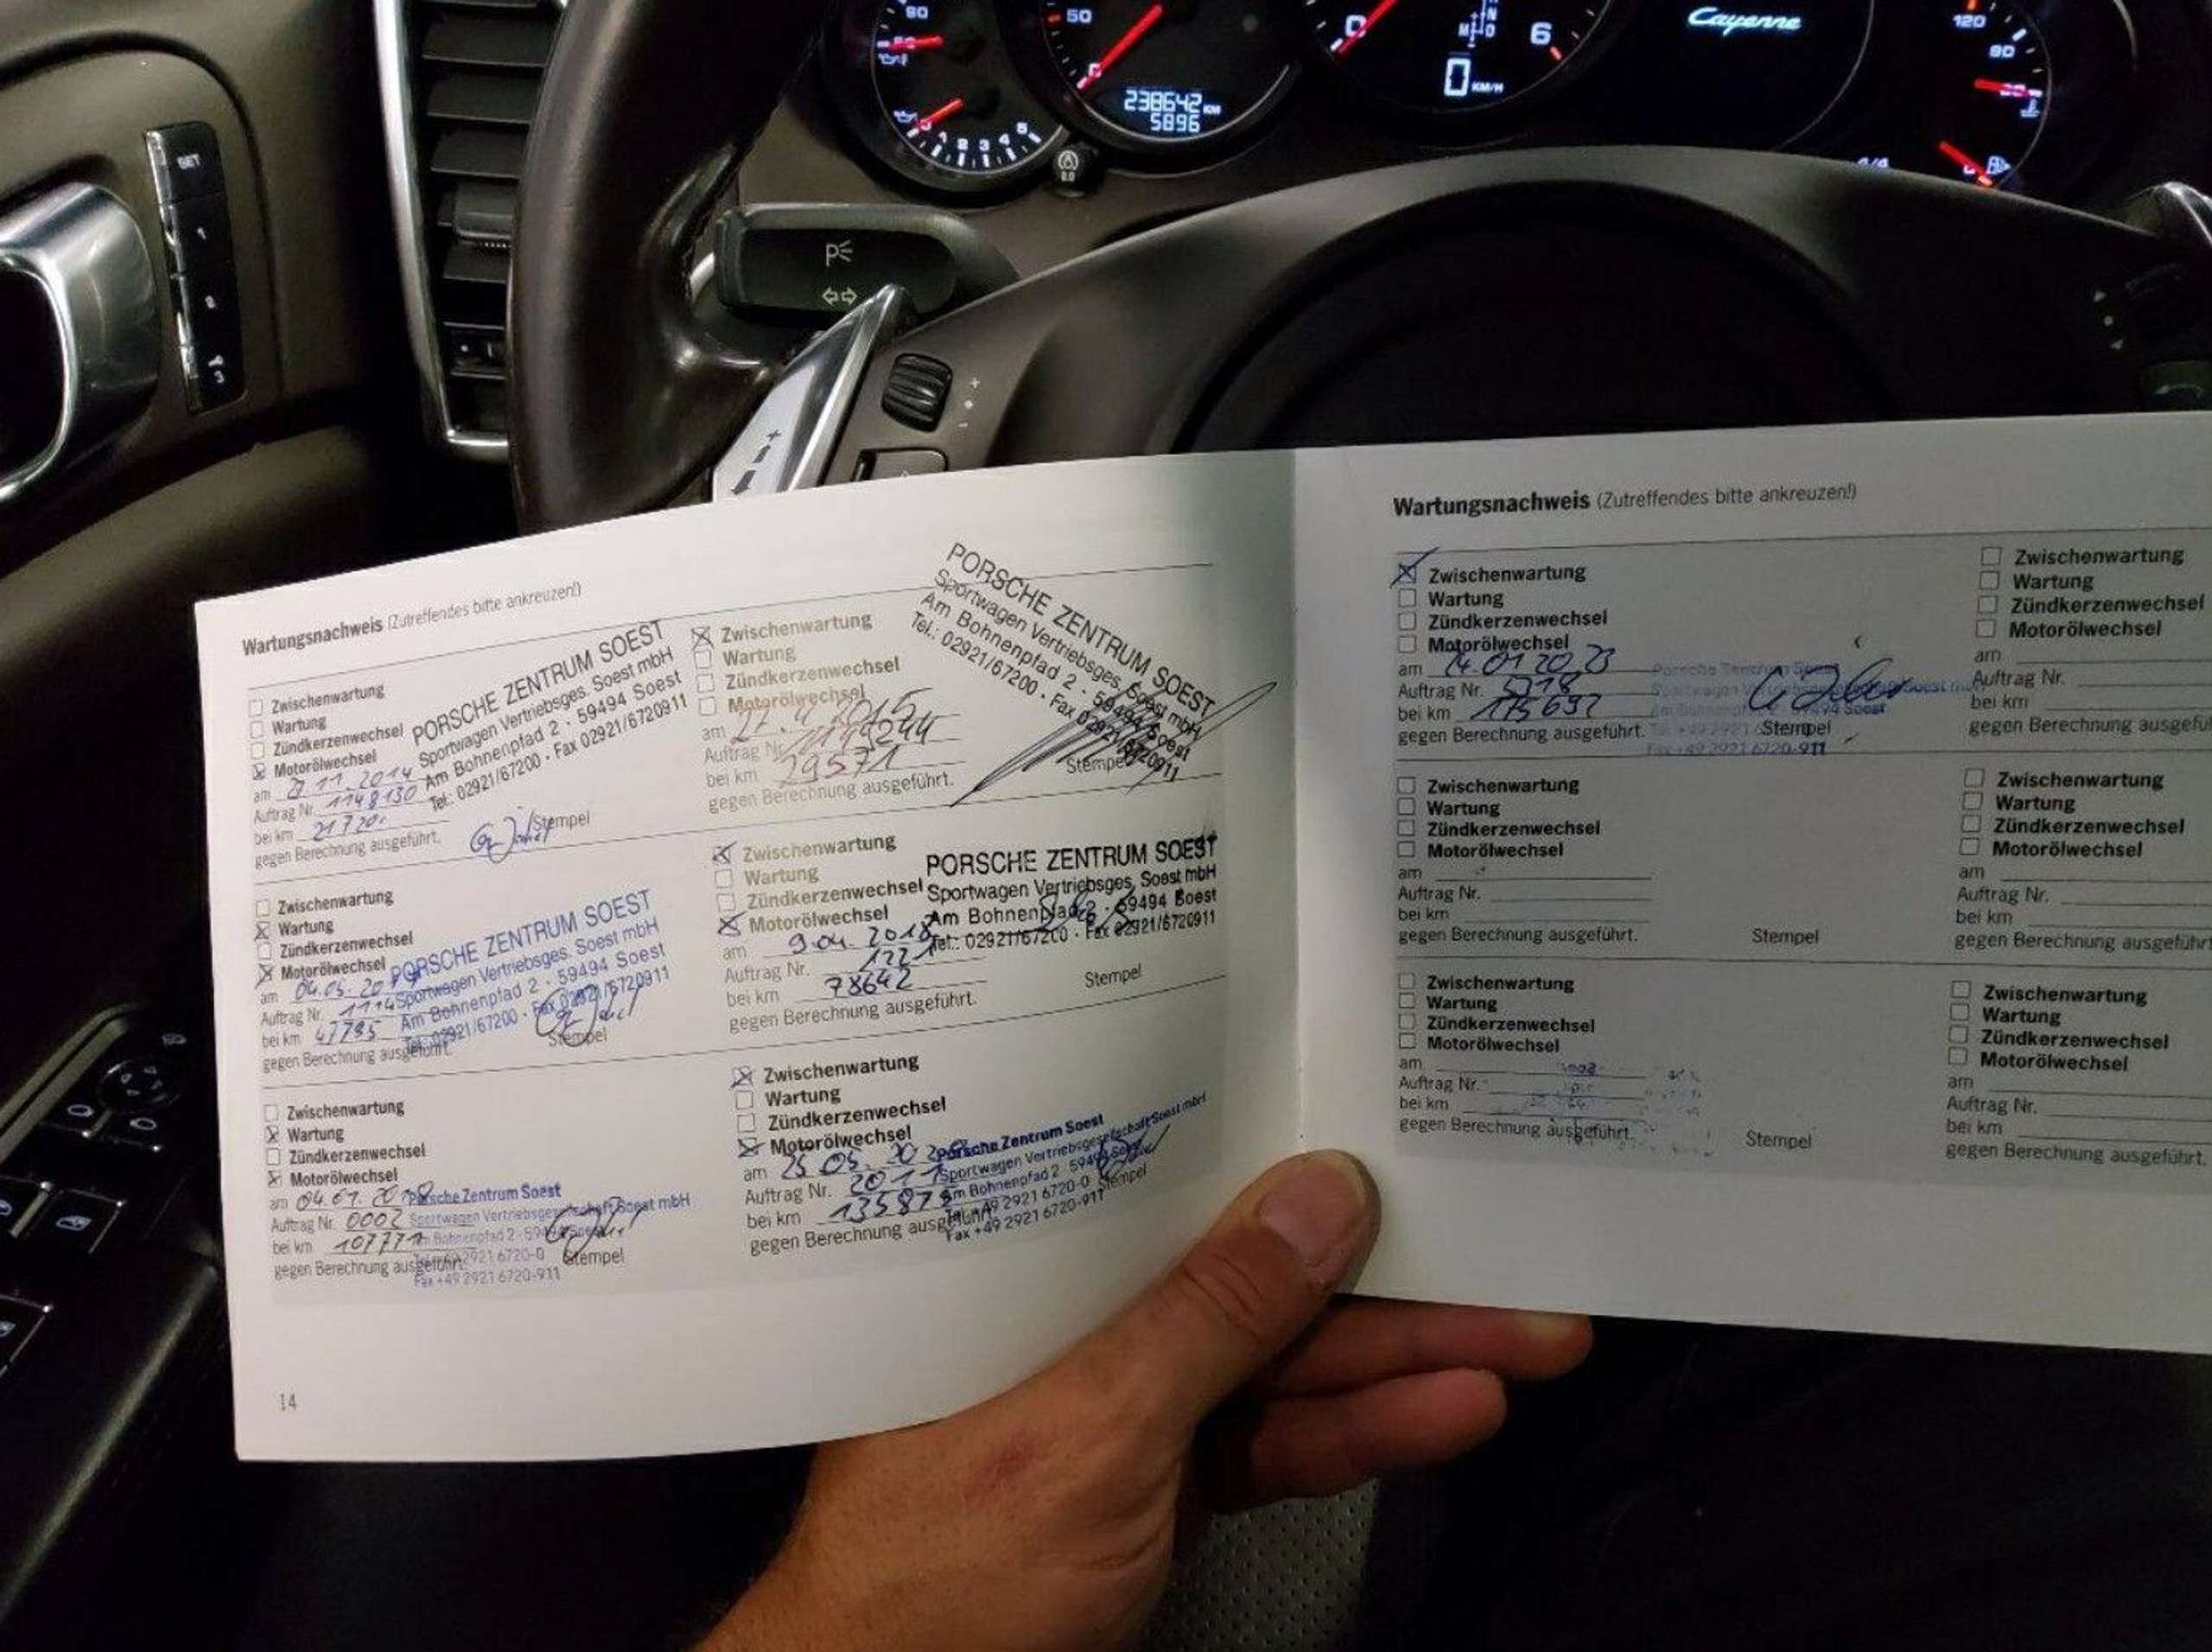 80
50
0
238642 KM
5896
0
N
M D
0 KM/H
6
Cayenne
120
90
1 2 3 4 5
SET
1
2
3
P
Wartungsnachweis (Zutreffendes bitte ankreuzen!)
Zwischenwartung
Wartung
Zündkerzenwechsel
Motorölwechsel
am 11.2014
Auftrag Nr. 1148130
bei km 21720
gegen Berechnung ausgeführt.
Stempel
PORSCHE ZENTRUM SOEST
Sportwagen Vertriebsges. Soest mbH
Am Bohnenpfad 2 - 59494 Soest
Tel.: 02921/67200 - Fax 02921/6720911
Zwischenwartung
Wartung
Zündkerzenwechsel
Motorölwechsel
am 04.05.20
Auftrag Nr.
bei km 47785
gegen Berechnung ausgeführt.
Stempel
PORSCHE ZENTRUM SOEST
Sportwagen Vertriebsges. Soest mbH
Am Bohnenpfad 2 - 59494 Soest
Tel.: 02921/67200 - Fax 02921/6720911
Zwischenwartung
Wartung
Zündkerzenwechsel
Motorölwechsel
am 04.01.20
Auftrag Nr. 0002
bei km 107771
gegen Berechnung ausgeführt.
Stempel
Porsche Zentrum Soest
Sportwagen Vertriebsgesellschaft Soest mbH
Am Bohnenpfad 2 - 59494 Soest
Tel. +49 2921 6720-0
Fax +49 2921 6720-911
14
Zwischenwartung
Wartung
Zündkerzenwechsel
Motorölwechsel
am 4.2015
Auftrag Nr. 1144244
bei km 29571
gegen Berechnung ausgeführt.
Stempel
PORSCHE ZENTRUM SOEST
Sportwagen Vertriebsges. Soest mbH
Am Bohnenpfad 2 - 59494 Soest
Tel.: 02921/67200 - Fax 02921/6720911
Zwischenwartung
Wartung
Zündkerzenwechsel
Motorölwechsel
am 9.04.2018
Auftrag Nr. 1221
bei km 78642
gegen Berechnung ausgeführt.
Stempel
PORSCHE ZENTRUM SOEST
Sportwagen Vertriebsges. Soest mbH
Am Bohnenpfad 2 - 59494 Soest
Tel.: 02921/67200 - Fax 02921/6720911
Zwischenwartung
Wartung
Zündkerzenwechsel
Motorölwechsel
am 25.05.20
Auftrag Nr. 2011
bei km 135875
gegen Berechnung ausgeführt.
Stempel
Porsche Zentrum Soest
Sportwagen Vertriebsgesellschaft Soest mbH
Am Bohnenpfad 2 59494 Soest
Tel. +49 2921 6720-0
Fax +49 2921 6720-911
Wartungsnachweis (Zutreffendes bitte ankreuzen!)
Zwischenwartung
Wartung
Zündkerzenwechsel
Motorölwechsel
am 14.01.2023
Auftrag Nr. 5718
bei km 175692
gegen Berechnung ausgeführt.
Stempel
Porsche Zentrum Soest
Fax +49 2921 6720-911
Zwischenwartung
Wartung
Zündkerzenwechsel
Motorölwechsel
am
Auftrag Nr.
bei km
gegen Berechnung ausgeführt.
Stempel
Zwischenwartung
Wartung
Zündkerzenwechsel
Motorölwechsel
am
Auftrag Nr.
bei km
gegen Berechnung ausgeführt.
Stempel
Zwischenwartung
Wartung
Zündkerzenwechsel
Motorölwechsel
am
Auftrag Nr.
bei km
gegen Berechnung ausgefü
Zwischenwartung
Wartung
Zündkerzenwechsel
Motorölwechsel
am
Auftrag Nr.
bei km
gegen Berechnung ausgeführt
Zwischenwartung
Wartung
Zündkerzenwechsel
Motorölwechsel
am
Auftrag Nr.
bei km
gegen Berechnung ausgeführt.